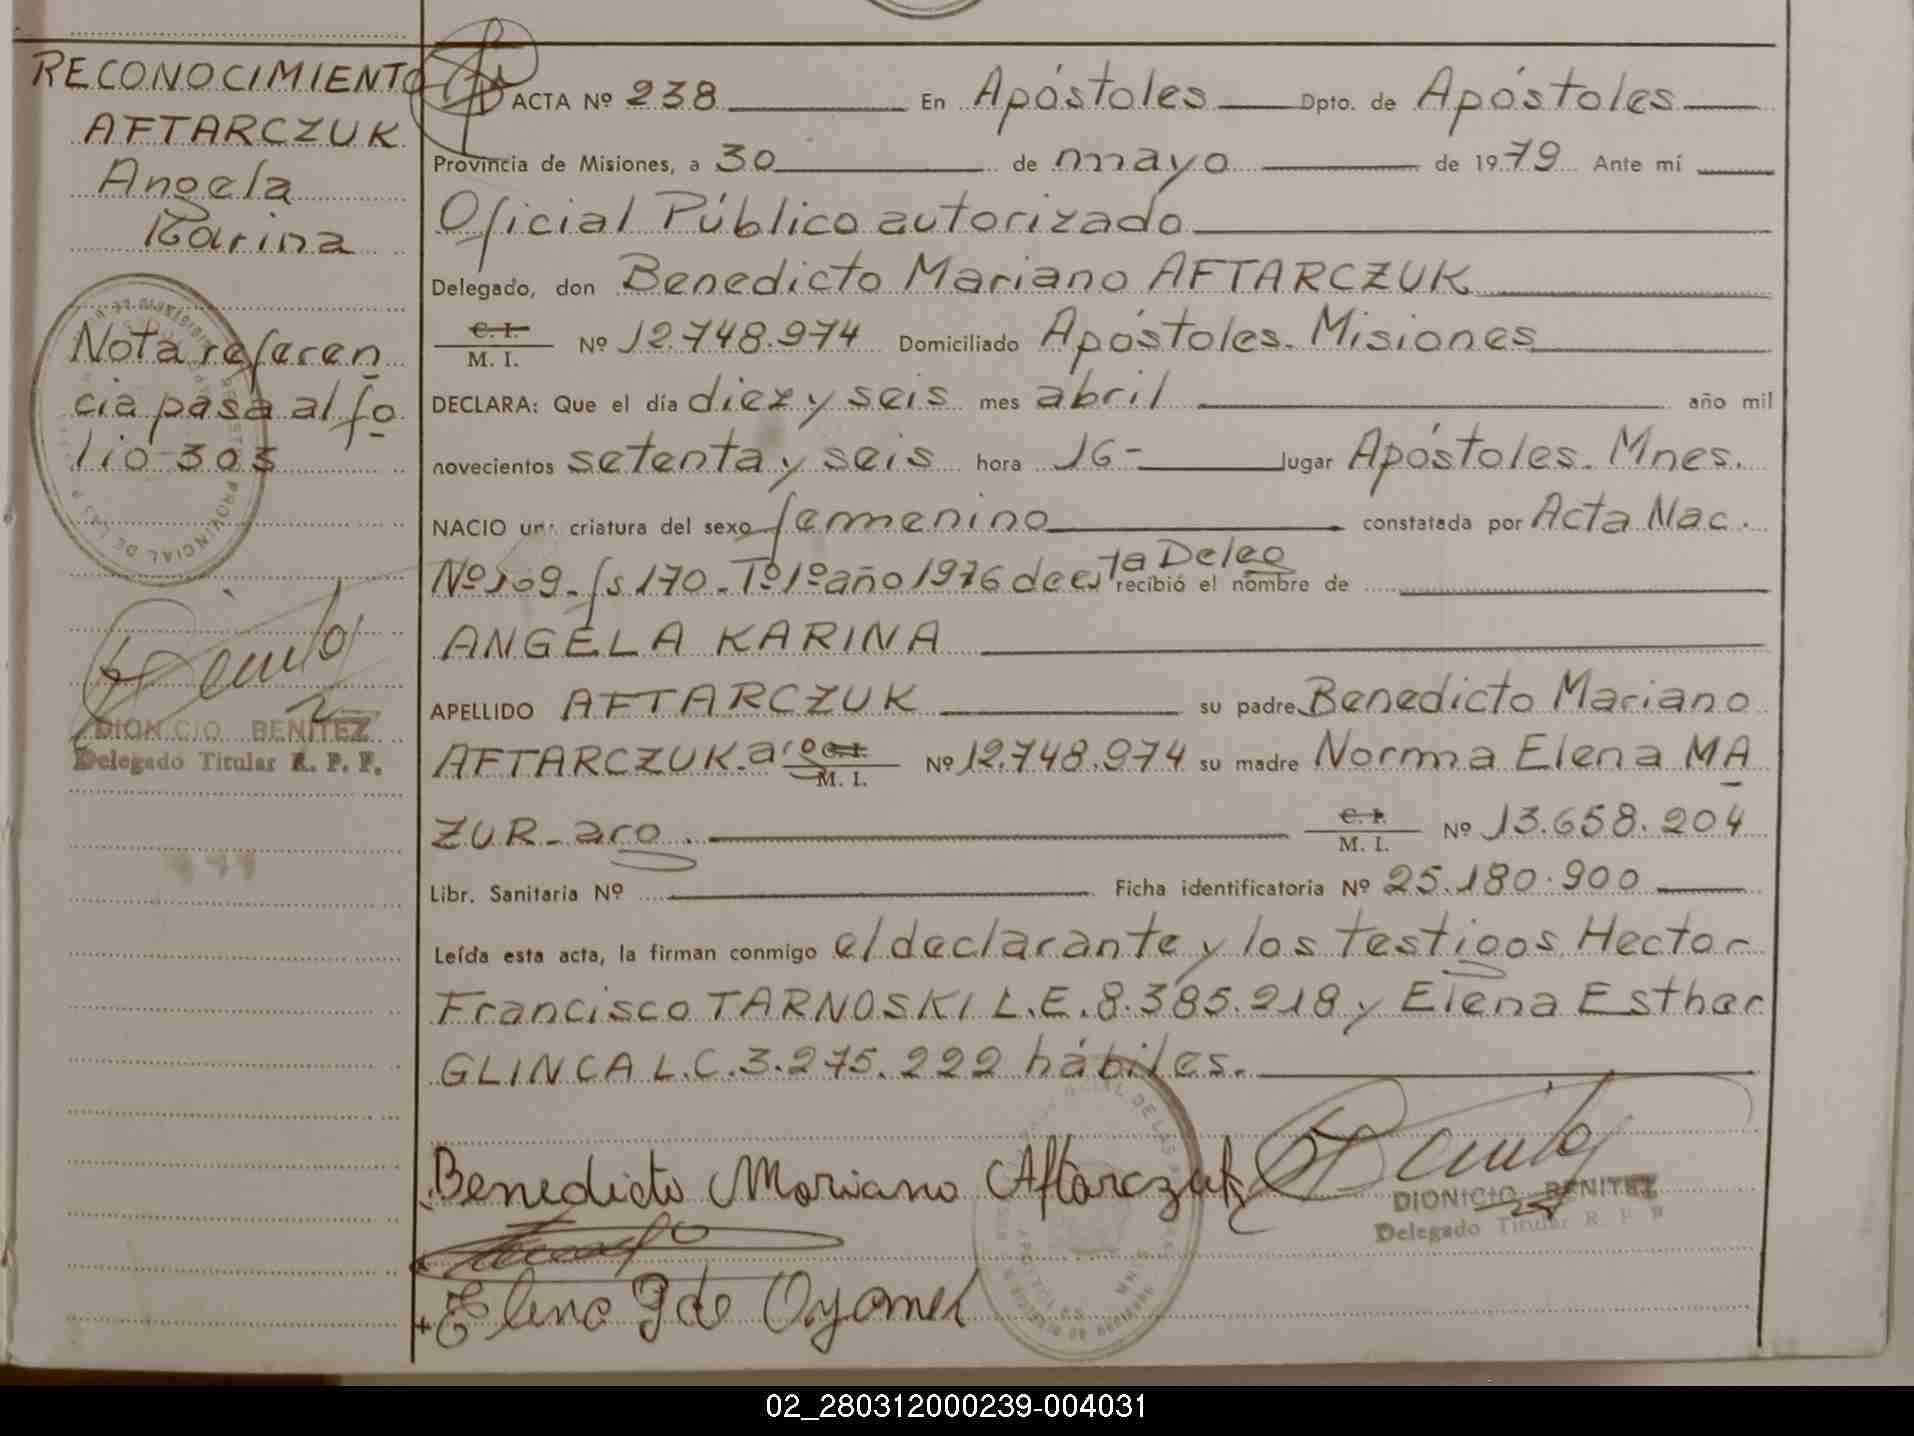 RECONOCIMIENTO
AFTARCZUK
Angela
Karina
Nota referen
cia pasa al fo
lio 303
DIONICIO BENITEZ
Delegado Titular R. P. P.
ACTA Nº 238 En Apóstoles Dpto. de Apóstoles
Provincia de Misiones, a 30 de mayo de 1979 Ante mí
Oficial Público autorizado
Delegado, don Benedicto Mariano AFTARCZUK
C. I.
M. I. Nº 12.748.974 Domiciliado Apóstoles. Misiones
DECLARA: Que el día diez y seis mes abril año mil
novecientos setenta y seis hora 16- lugar Apóstoles. Mnes.
NACIO un criatura del sexo femenino constatada por Acta Nac.
Nº 109- fs 170- Tº 1º año 1976 de esta Deleg recibió el nombre de
ANGELA KARINA
APELLIDO AFTARCZUK su padre Benedicto Mariano
AFTARCZUK. arg C. I. M. I. Nº 12.748.974 su madre Norma Elena MA
ZUR- arg. C. I. M. I. Nº 13.658.204
Libr. Sanitaria Nº Ficha identificatoria Nº 25.180.900
Leída esta acta, la firman conmigo el declarante y los testigos Hector
Francisco TARNOSKI L.E. 8.385.218 y Elena Esther
GLINCA L.C. 3.275.222 hábiles.
Benedicto Mariano Aftarczuk
DIONICIO BENITEZ
Delegado Titular R. P. P.
Elena G de
02_280312000239-004031